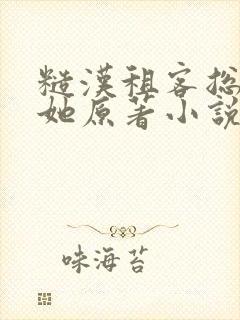 糙漢租客撚
她原著小說
味海苔